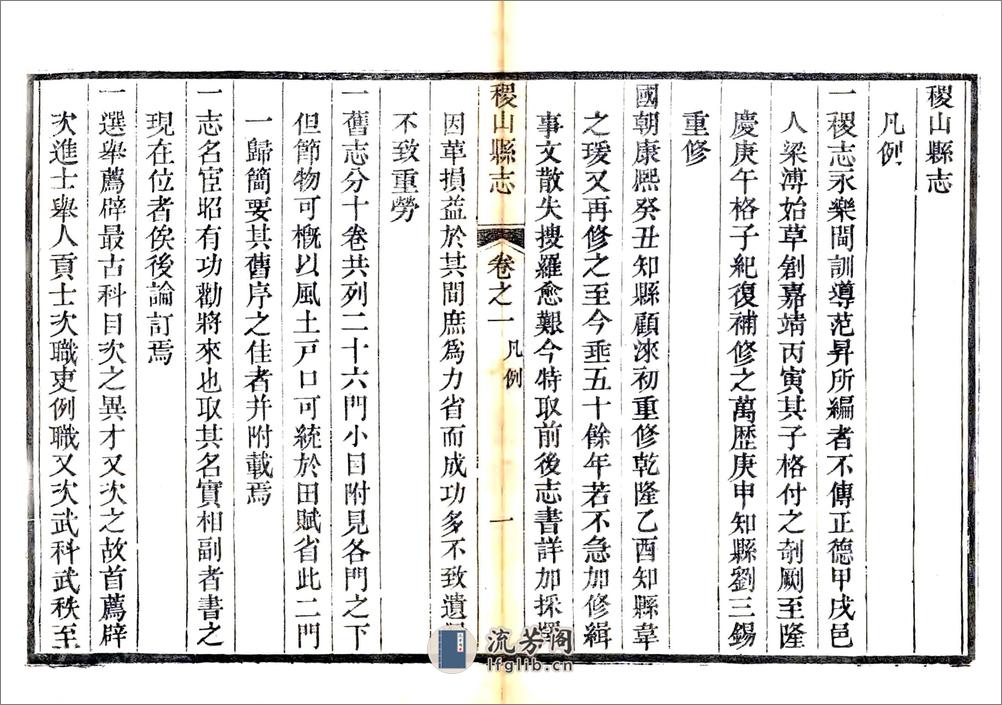 稷山縣志
凡例
一稷志永樂間訓導范昇所編者不傳正德甲戌邑
人梁溥始草創嘉靖丙寅其子格付之剞劂至隆
慶庚午格子紀復補修之萬歷庚申知縣劉三錫
重修
國朝康熙癸丑知縣顧涞初重修乾隆乙酉知縣韋
之瑗又再修之至今垂五十餘年若不急加修緝
事文散失搜羅愈艱今特取前後志書詳加採擇
稷山縣志 卷之一 凡例 一
因革損益於其間庶爲力省而成功多不致遺
不致重勞
一舊志分十卷共列二十六門小目附見各門之下
但節物可概以風土戸口可統於田賦省此二門
一歸簡要其舊序之佳者并附載焉
一志名宦昭有功勸將來也取其名實相副者書之
現在位者俟後論訂焉
一選舉薦辟最古科目次之異才又次之故首薦辟
次進士舉人貢士次職吏例職又次武科武秩至
流芳阁
lfglib.cn